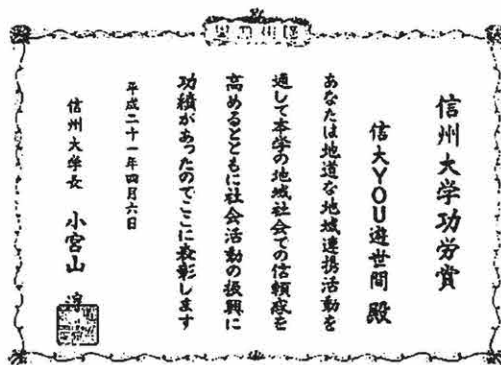 信州大学功労賞
信大YOU遊世間 殿
あなたは地道な地域連携活動を
通して本学の地域社会での信頼感を
高めるとともに社会活動の振興に
功績があったのでここに表彰します
平成二十一年四月六日
信州大学長 小宮山 淳